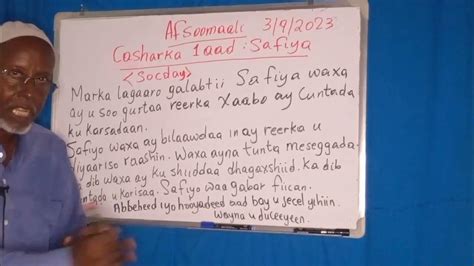 Afsoomaali 3/9/2023
Casharka 1aad: Safiya
<Socday>
Marka lagaaro galabtii Safiya waxa
ay u soo gurtaa reerka xaabo ay Cuntada
ku karsadaan.
Safiyo waxa ay bilaawdaa in ay reerka u
diyaariso raashin. Waxa ayna tuntaa meseggada
dib waxa ay ku shiiddaa dhagaxshiid. Ka dib
Cuntada u karisaa. Safiyo waa gabar fiican.
Abbeheed iyo hooyadeed aad bay u jecel yihiin.
Wayna u duceeyeen.